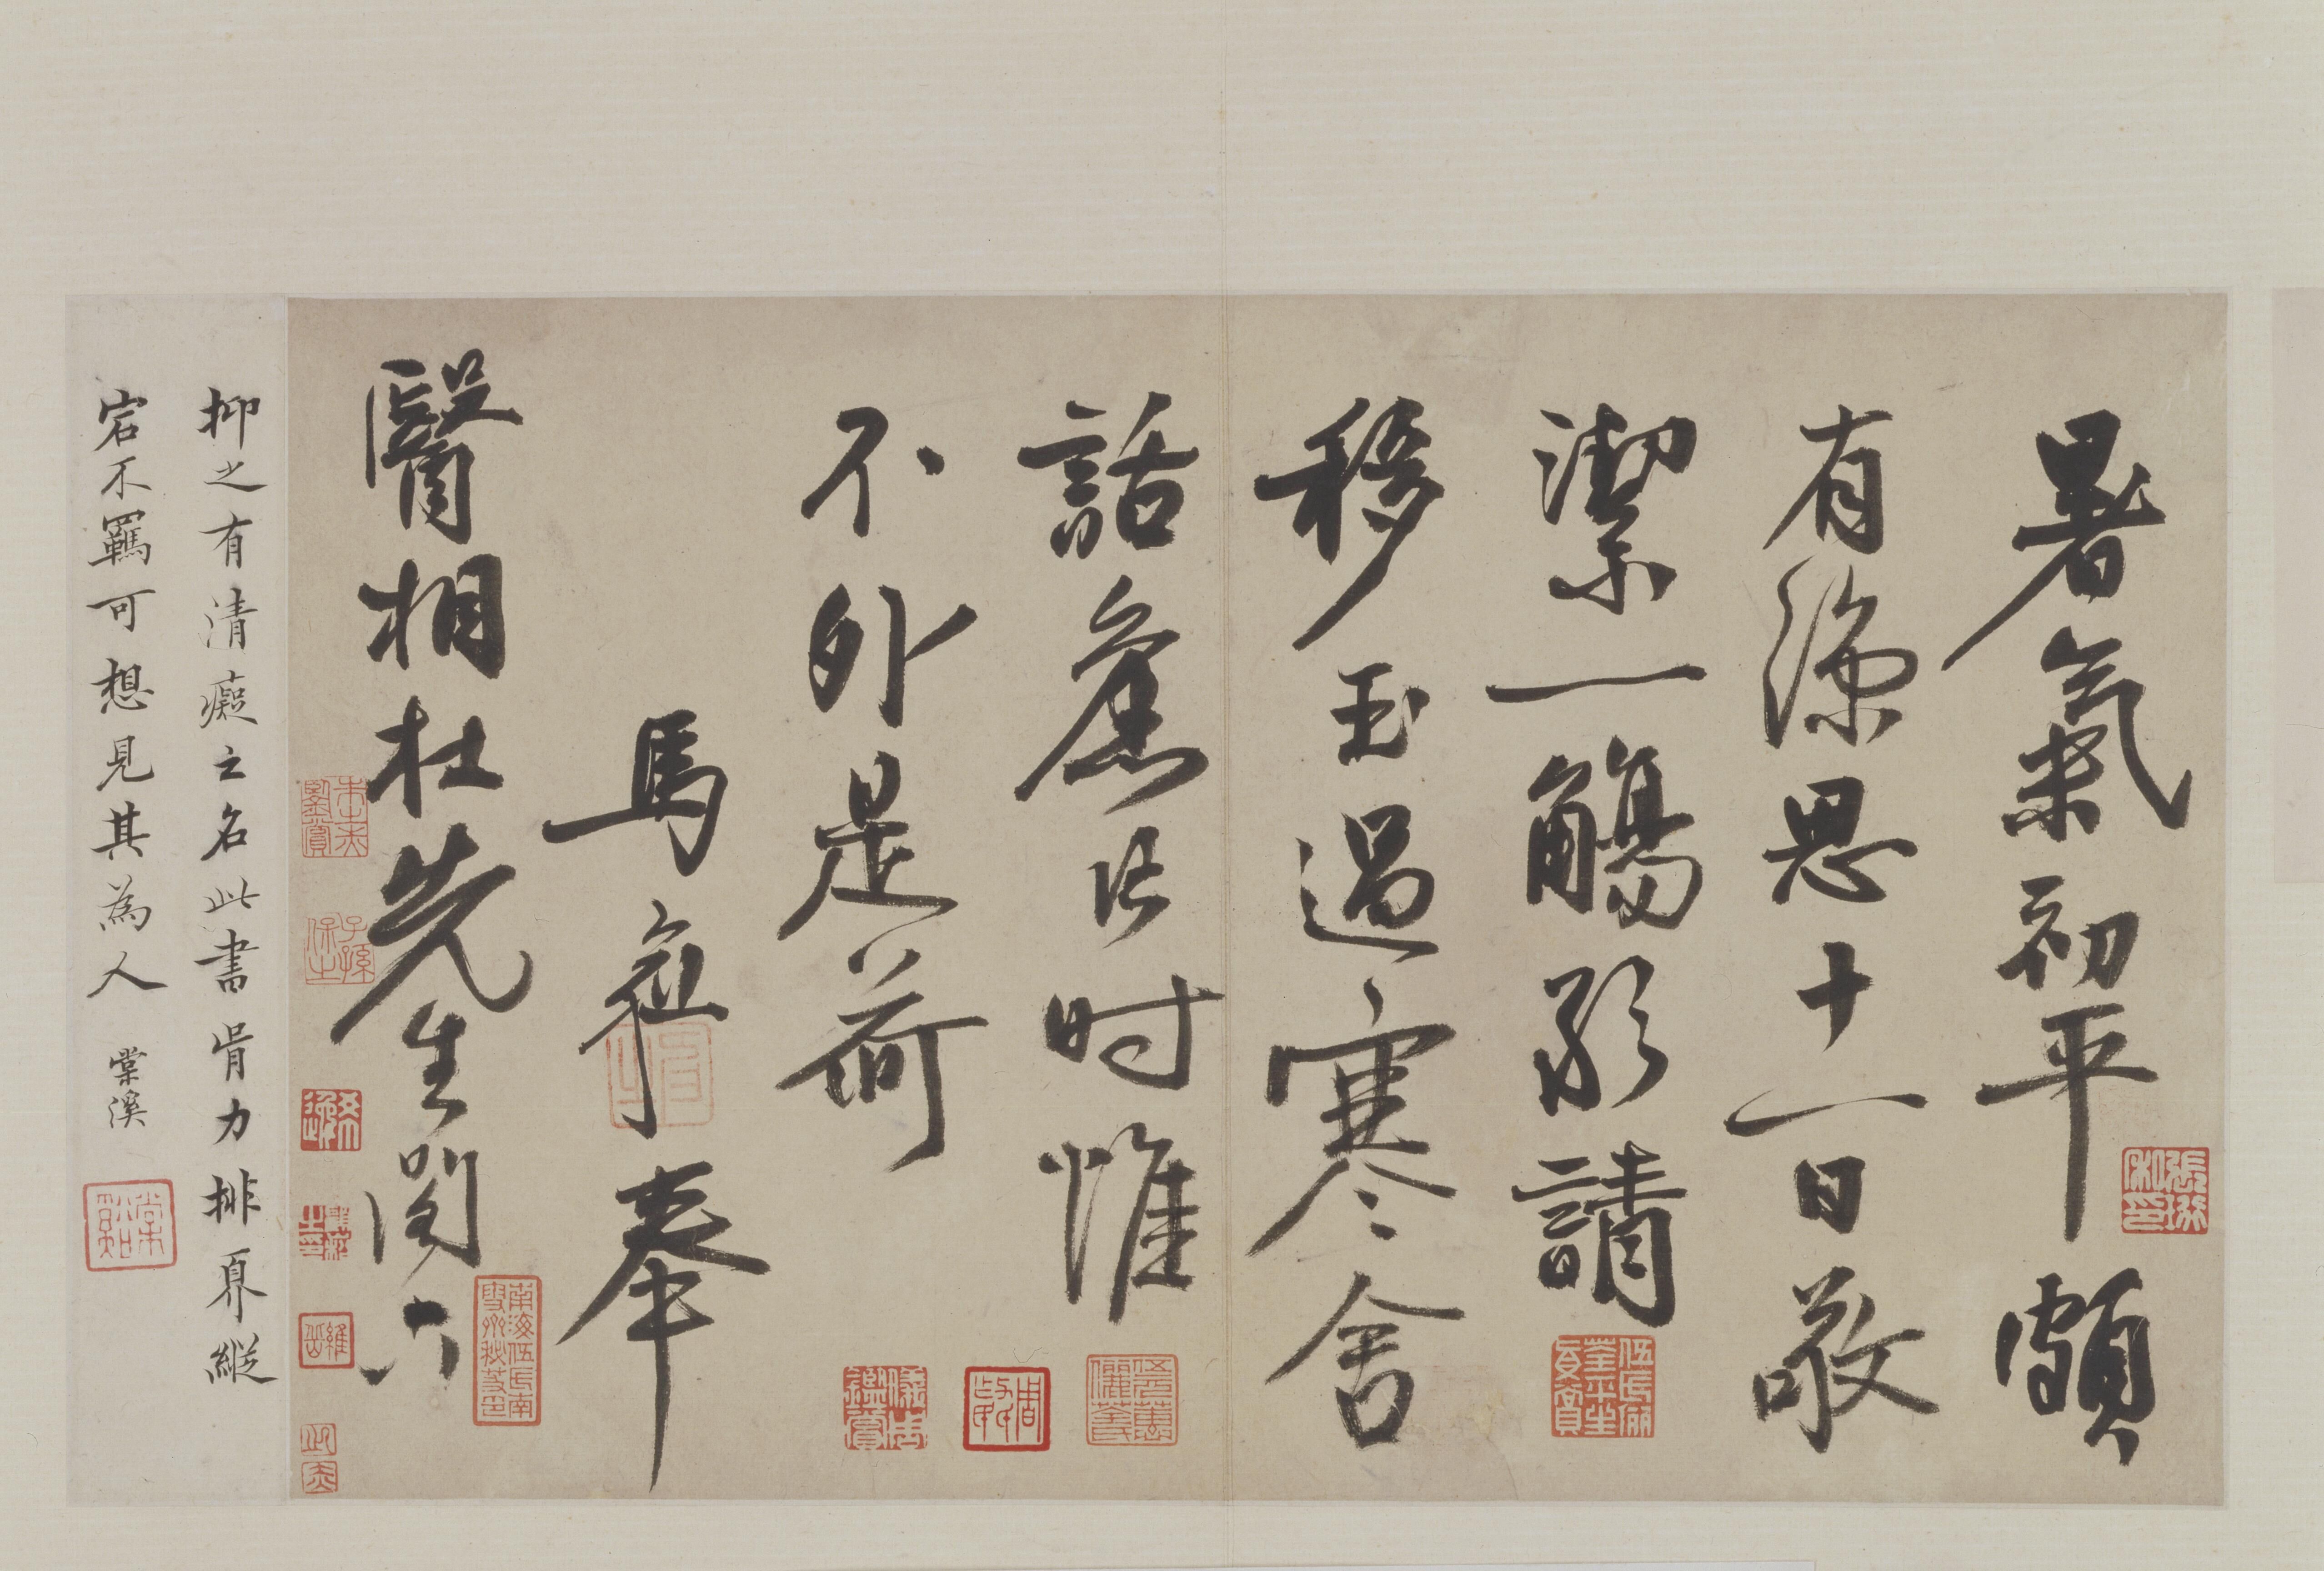 暑氣初平頗
有添思十一日敬
潔一觴敢請
移玉過寒舍
話舊片時惟
不外是荷
馬愈奉
醫相杜先生閣下
抑之有清癡之名此書骨力排奡縱
宕不羈可想見其為人 棠溪